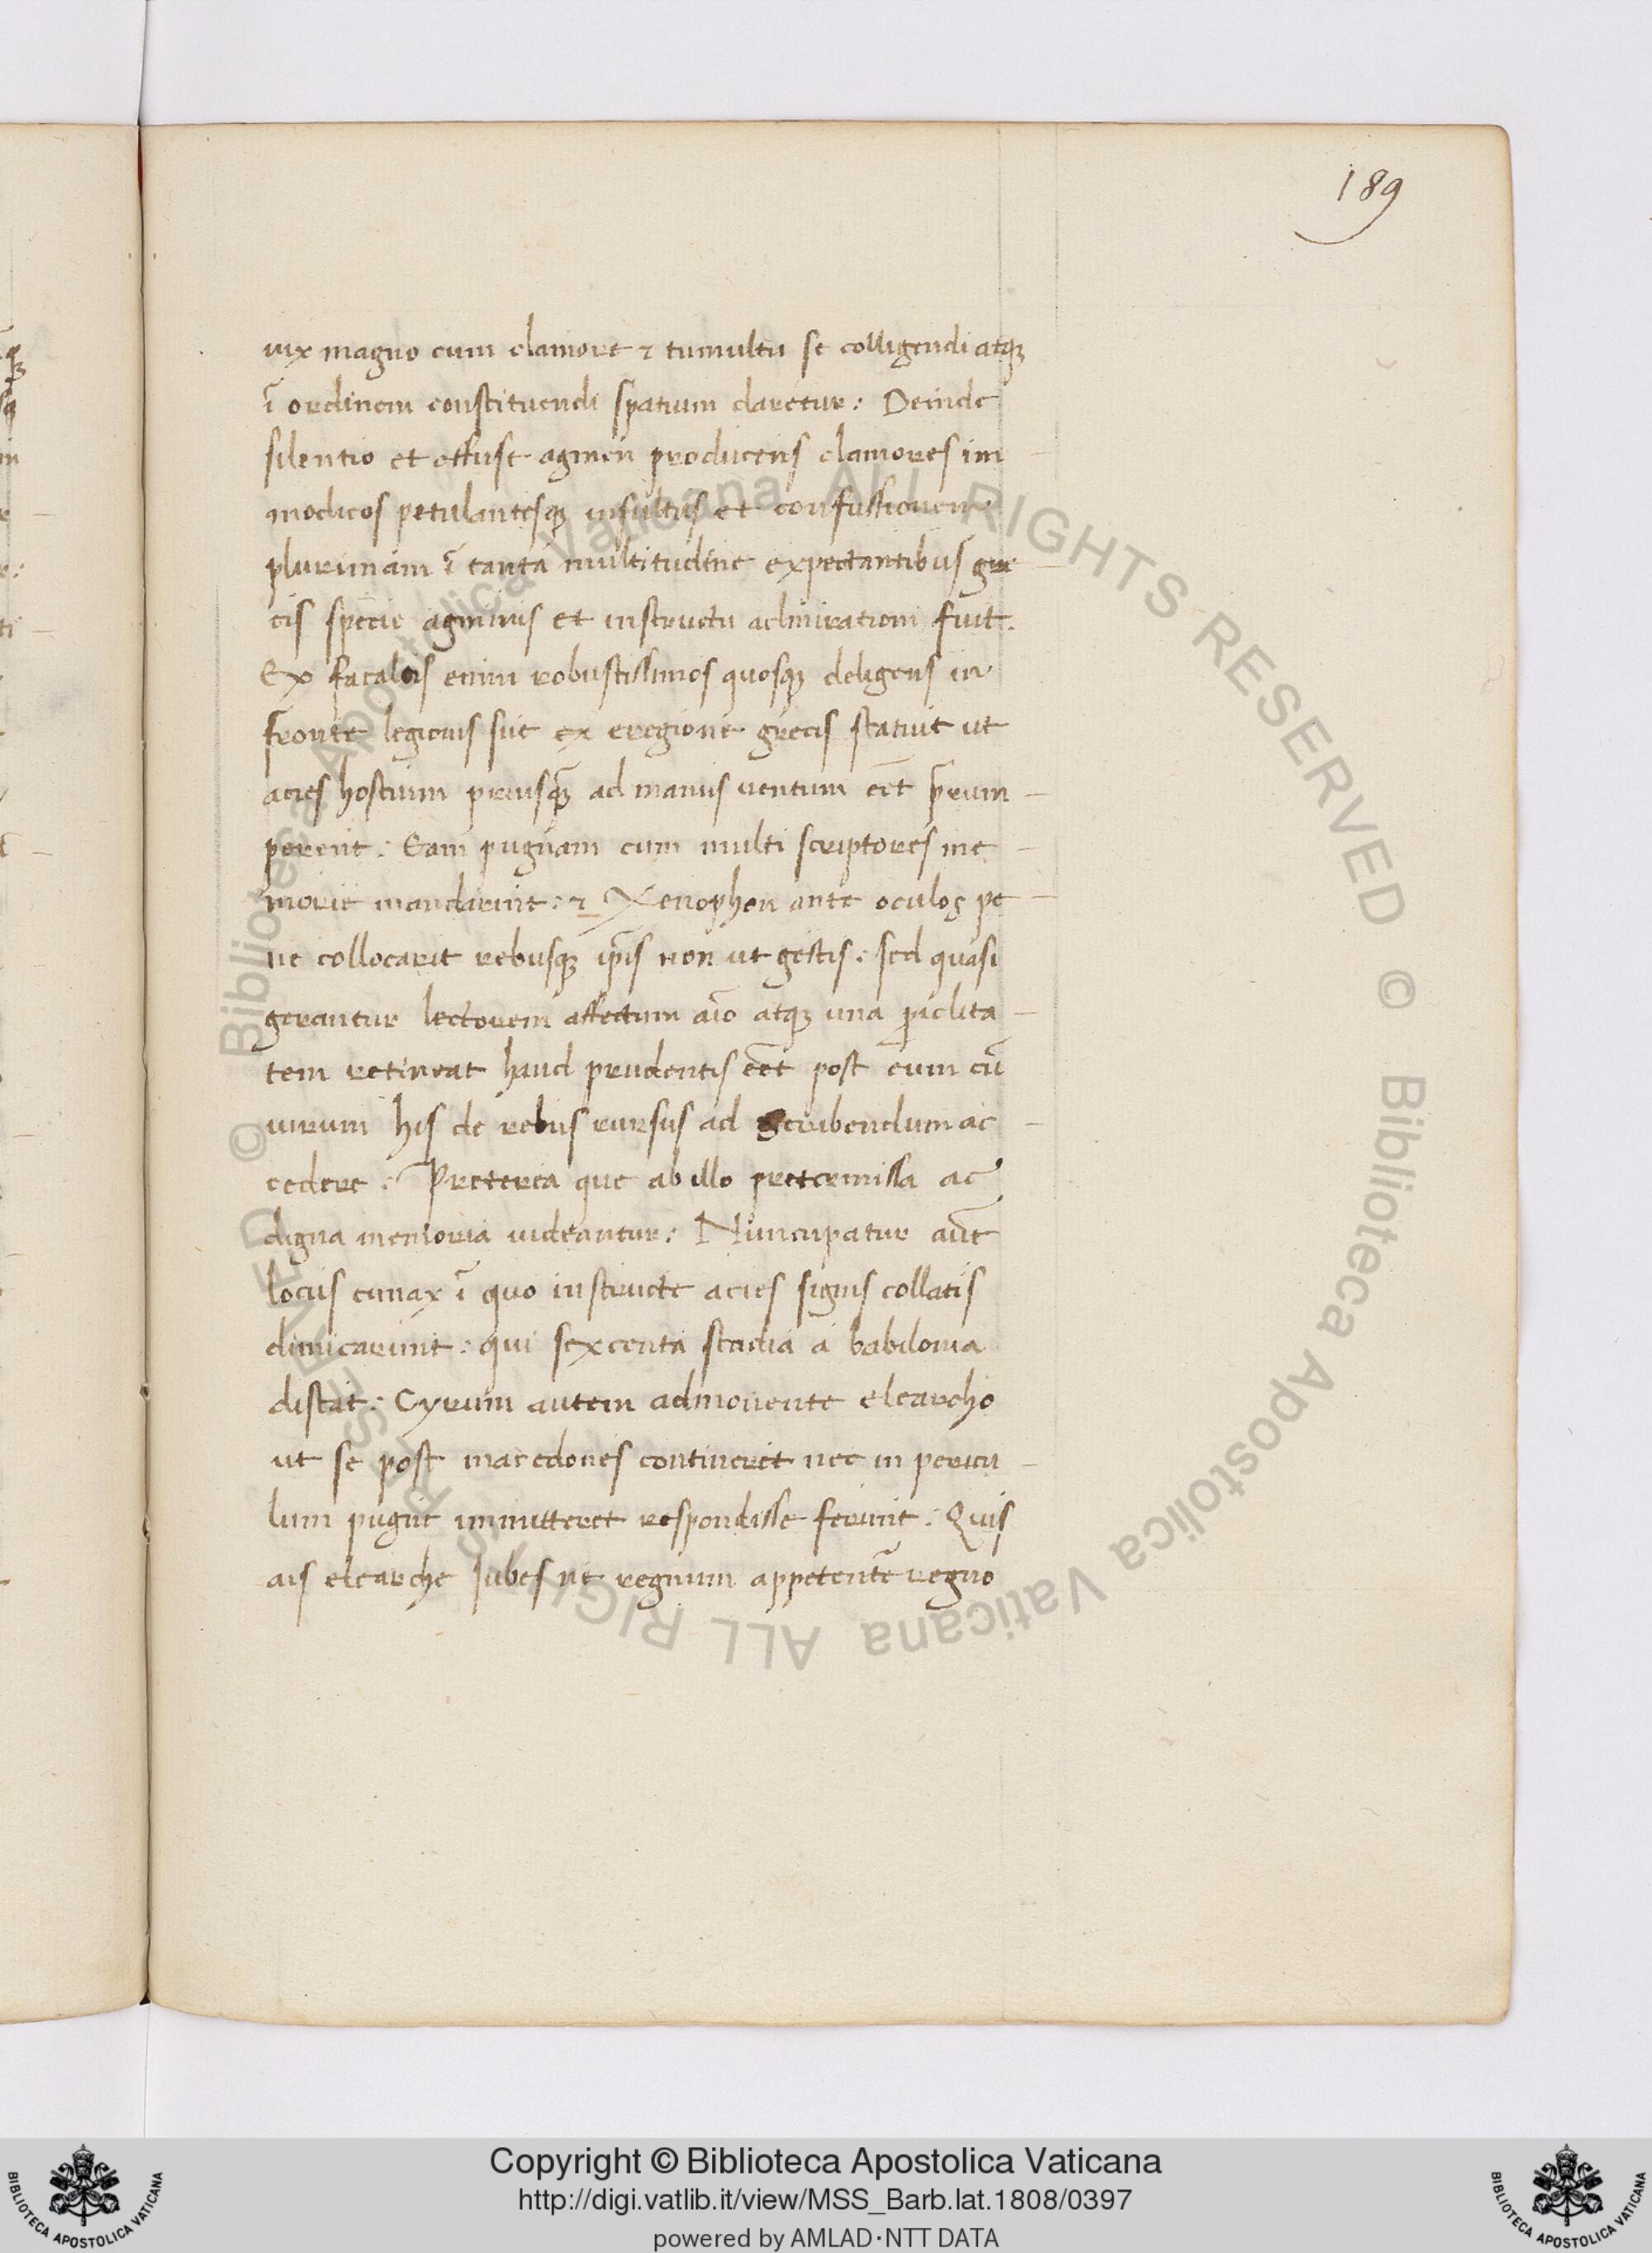 189
uix magno cum clamore ⁊ tumultu se colligendi atqꝫ
ī ordinem constituendi spatium daretur: Deinde
silentio et effuse agmen producens clamores im
modicos petulantesqꝫ insultus et confussionem
plurimam ī tanta multitudine expectantibus gre
cis specie agminis et instructu admirationi fuit.
Ex facalcis enim robustissimos quosqꝫ deligens in
fronte legionis sue ex eregione grecis statuit ut
acies hostium priusqꝫ̄ ad manus uentum eēt p̄rum
perent: Eam pugnam cum multi scriptores me
morie mandarint: ⁊ Xenophon ante oculos pe
ne collocarit rebusqꝫ ip̄is non ut gestis: sed quasi
gerantur lectorem affectum aīo atqꝫ una piclita
tem retineat haud prudentis eēt post eum cū
uirum his de rebus rursus ad scribendum ac
cedere: Preterea que ab illo pretermissa ac
digna memoria uideantur: Nuncupatur aūt
locus cunax ī quo instructe acies signis collatis
dimicarunt: qui sexcenta stadia a babilonia
distat: Cyrum autem admonente clearcho
ut se post macedones contineret nec in pericu
lum pugne immitteret respondisse ferunt: Quis
ais clearche Iubes ne regnum appetentē regno
Copyright © Biblioteca Apostolica Vaticana
http://digi.vatlib.it/view/MSS_Barb.lat.1808/0397
powered by AMLAD·NTT DATA